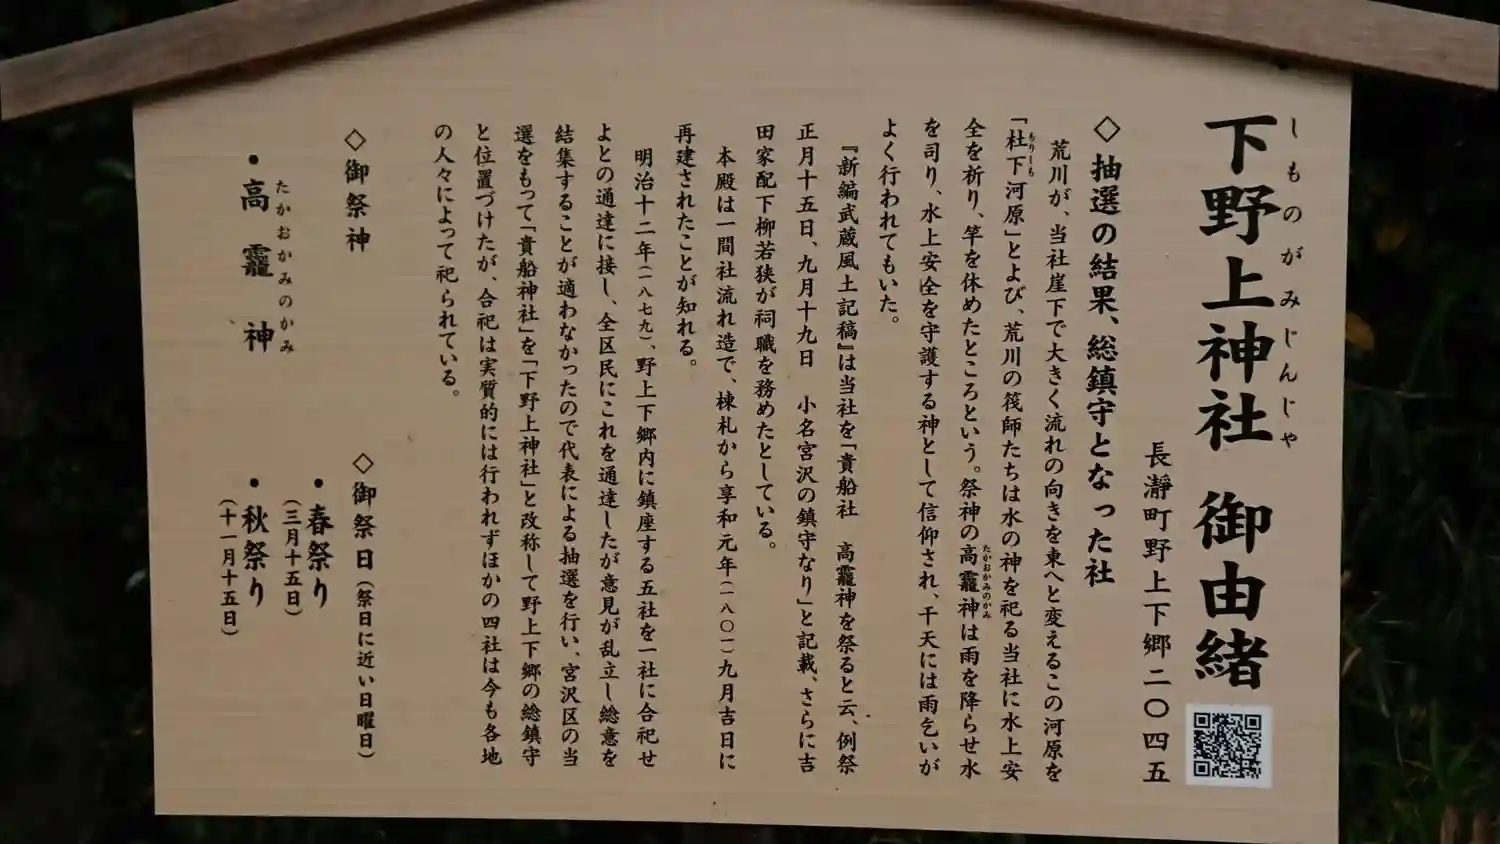 下野上神社 御由緒
しものがみじんじゃ
長瀞町野上下郷二〇四五
◇抽選の結果、総鎮守となった社
荒川が、当社崖下で大きく流れの向きを東へと変えるこの河原を
「杜下河原」とよび、荒川の筏師たちは水の神を祀る当社に水上安
もりしも
全を祈り、竿を休めたところという。祭神の高龗神は雨を降らせ水
たかおかみのかみ
を司り、水上安全を守護する神として信仰され、干天には雨乞いが
よく行われてもいた。
『新編武蔵風土記稿』は当社を「貴船社 高龗神を祭ると云、例祭
正月十五日、九月十九日 小名宮沢の鎮守なり」と記載、さらに吉
田家配下柳若狭が祠職を務めたとしている。
本殿は一間社流れ造で、棟札から享和元年(一八〇一)九月吉日に
再建されたことが知れる。
明治十二年(一八七九)、野上下郷内に鎮座する五社を一社に合祀せ
よとの通達に接し、全区民にこれを通達したが意見が乱立し総意を
結集することが適わなかったので代表による抽選を行い、宮沢区の当
選をもって「貴船神社」を「下野上神社」と改称して野上下郷の総鎮守
と位置づけたが、合祀は実質的には行われずほかの四社は今も各地
の人々によって祀られている。
◇御祭神
・高龗神
たかおかみのかみ
◇御祭日(祭日に近い日曜日)
・春祭り
(三月十五日)
・秋祭り
(十一月十五日)